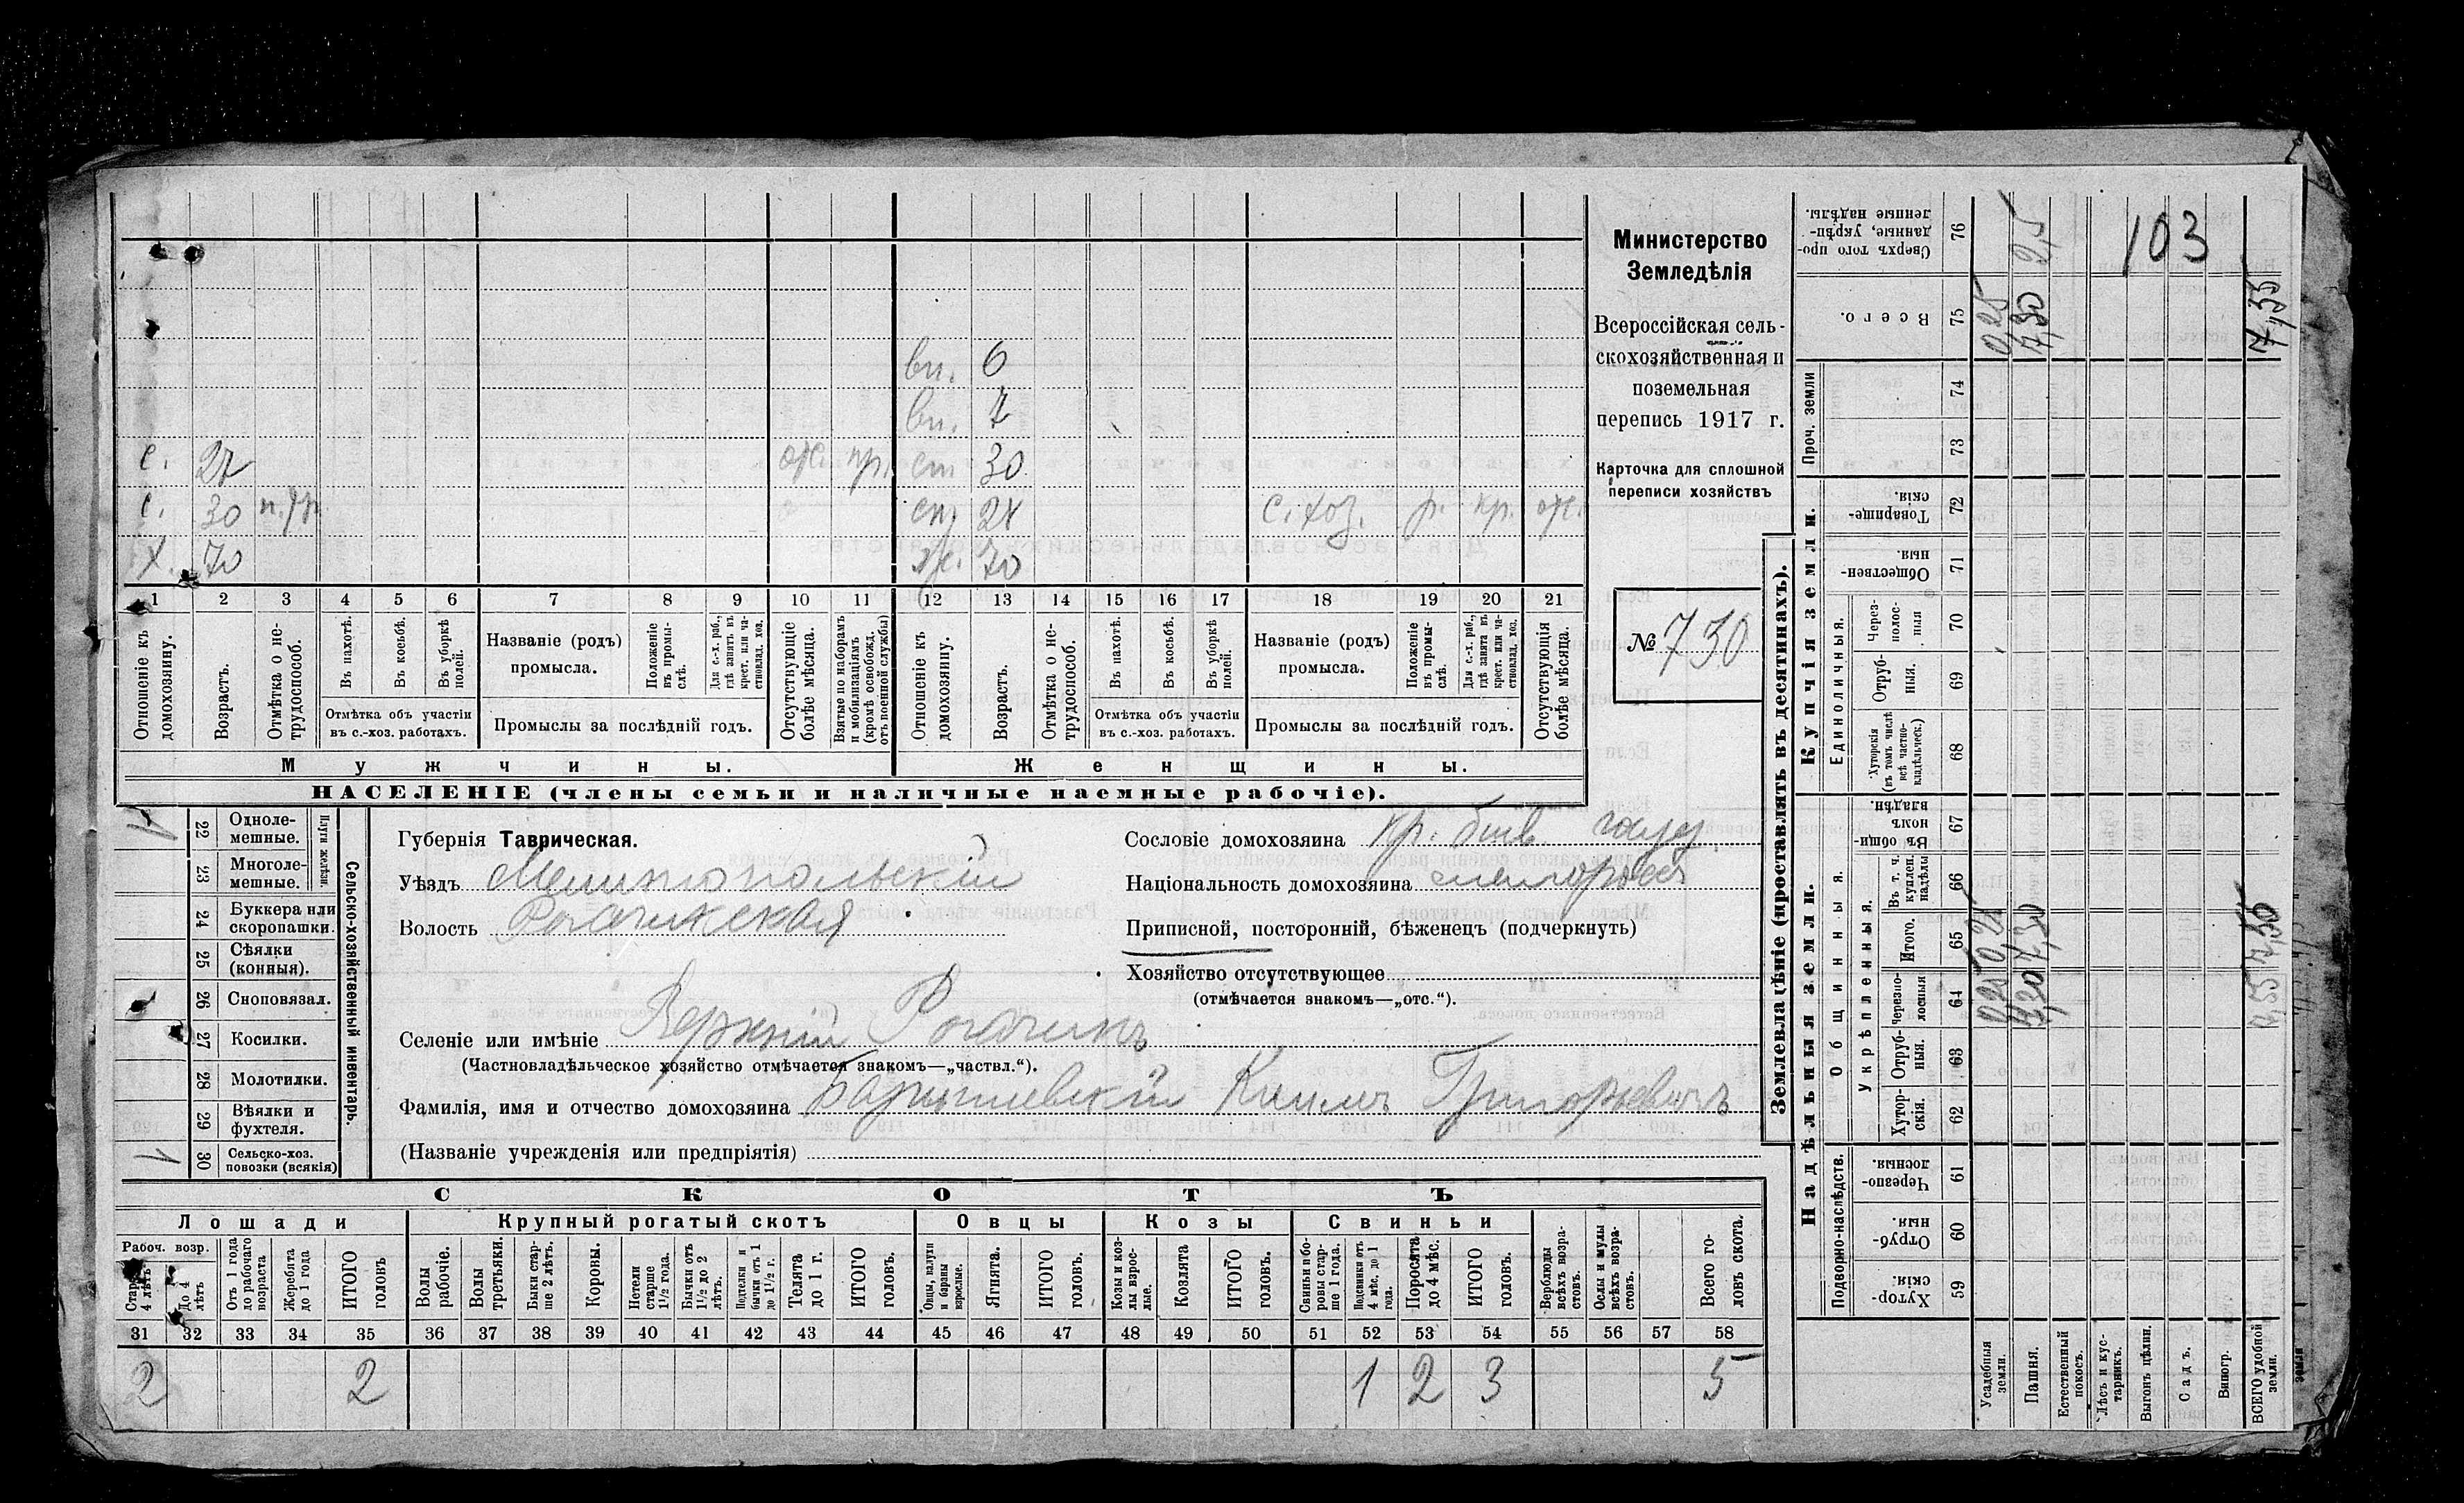 вн. 6
вн. 7
с. 27 отс. пр. сн 30
с. 30 сн. с. хоз. р. кр. отс.
х. 70 ж. 70
1 2 3 4 5 6 7 8 9 10 11 12 13 14 15 16 17 18 19 20 21
Отношеніе къ домохозяину.
Возрастъ.
Отмѣтка о нетрудоспособ.
Въ пахотѣ.
Въ косьбѣ.
Въ уборкѣ полей.
Отмѣтка объ участіи въ с.-хоз. работахъ.
Названіе (родъ) промысла.
Положеніе въ промыслѣ.
Для с.-х. раб., гдѣ занятъ въ крест. или частновлад. хоз.
Промыслы за послѣдній годъ.
Отсутствующіе болѣе мѣсяца.
Взятые по наборамъ и мобилизаціямъ (кромѣ освобожд. отъ военной службы)
Отношеніе къ домохозяину.
Возрастъ.
Отмѣтка о нетрудоспособ.
Въ пахотѣ.
Въ косьбѣ.
Въ уборкѣ полей.
Отмѣтка объ участіи въ с.-хоз. работахъ.
Названіе (родъ) промысла.
Положеніе въ промыслѣ.
Для с.-х. раб., гдѣ занята въ крест. или частновлад. хоз.
Промыслы за послѣдній годъ.
Отсутствующія болѣе мѣсяца.
Мужчины. Женщины.
НАСЕЛЕНІЕ (члены семьи и наличные наемные рабочіе).
Министерство
Земледѣлія
Всероссійская сель-
скохозяйственная и
поземельная
перепись 1917 г.
Карточка для сплошной
переписи хозяйствъ
№ 730
Сельско-хозяйственный инвентарь.
Плуги желѣзн.
1 22 Однолемешные.
23 Многолемешные.
24 Буккера или скоропашки.
25 Сѣялки (конныя).
26 Сноповязал.
27 Косилки.
28 Молотилки.
29 Вѣялки и фухтеля.
1 30 Сельско-хоз. повозки (всякія)
Губернія Таврическая.
Уѣздъ Мелитопольскій
Волость Рогачикская
Сословіе домохозяина кр. быв. госуд.
Національность домохозяина малороссъ
Приписной, посторонній, бѣженец (подчеркнуть)
Хозяйство отсутствующее
(отмѣчается знакомъ—„отс.“).
Селеніе или имѣніе Верхній Рогачикъ
(Частновладѣльческое хозяйство отмѣчается знакомъ—„частвл.“).
Фамилія, имя и отчество домохозяина Барышевскій Климъ Григорьевичъ
(Названіе учрежденія или предпріятія)
СКОТЪ
Лошади Крупный рогатый скотъ Овцы Козы Свиньи
Рабоч. возр.
Старше 4 лѣтъ
До 4 лѣтъ
Отъ 1 года до рабочаго возраста
Жеребята до 1 года
ИТОГО головъ
Волы рабочіе.
Волы третьяки.
Быки старше 2 лѣтъ.
Коровы.
Нетели старше 1½ года.
Бычки отъ 1½ до 2 лѣтъ.
Подтелки и бычки отъ 1 до 1½ г.
Телята до 1 г.
ИТОГО головъ.
Овцы, валухи и бараны взрослые.
Ягнята.
ИТОГО головъ.
Козы и козлы взрослые.
Козлята
ИТОГО головъ.
Свиньи и боровы старше 1 года.
Подсвинки отъ 4 мѣс. до 1 года.
Поросята до 4 мѣс.
ИТОГО головъ.
Верблюды всѣхъ возрастовъ.
Ослы и мулы всѣхъ возрастовъ.
Всего головъ скота.
31 32 33 34 35 36 37 38 39 40 41 42 43 44 45 46 47 48 49 50 51 52 53 54 55 56 57 58
2 2 1 2 3 5
Землевладѣніе (проставлять въ десятинахъ).
Надѣльныя земли. Купчія земли.
Подворно-наслѣдств.
Общинныя
Укрѣпленныя.
Единоличныя.
Проч. земли
59 Хуторскія.
60 Отрубныя.
61 Черезполосныя.
62 Хуторскія.
63 Отрубныя.
64 Черезполосныя 0,25 7,30 7,55
65 Итого. 0,25 7,30 7,55
66 Въ т. ч. куплен. надѣлы
67 Въ общинномъ владѣн.
68 Хуторскія (въ томъ числѣ всѣ частновладѣльческ.)
69 Отрубныя.
70 Черезполосныя
71 Общественныя.
72 Товарищескія.
73
74
75 Всего. 0,25 7,30 7,55
76 Сверхъ того проданные, укрѣпленные надѣлы. 2,5
103
Усадебныя земли.
Пашня.
Естественный покосъ.
Лѣсъ и кустарникъ.
Выгонъ цѣлин.
Садъ.
Виногр.
ВСЕГО удобной земли.